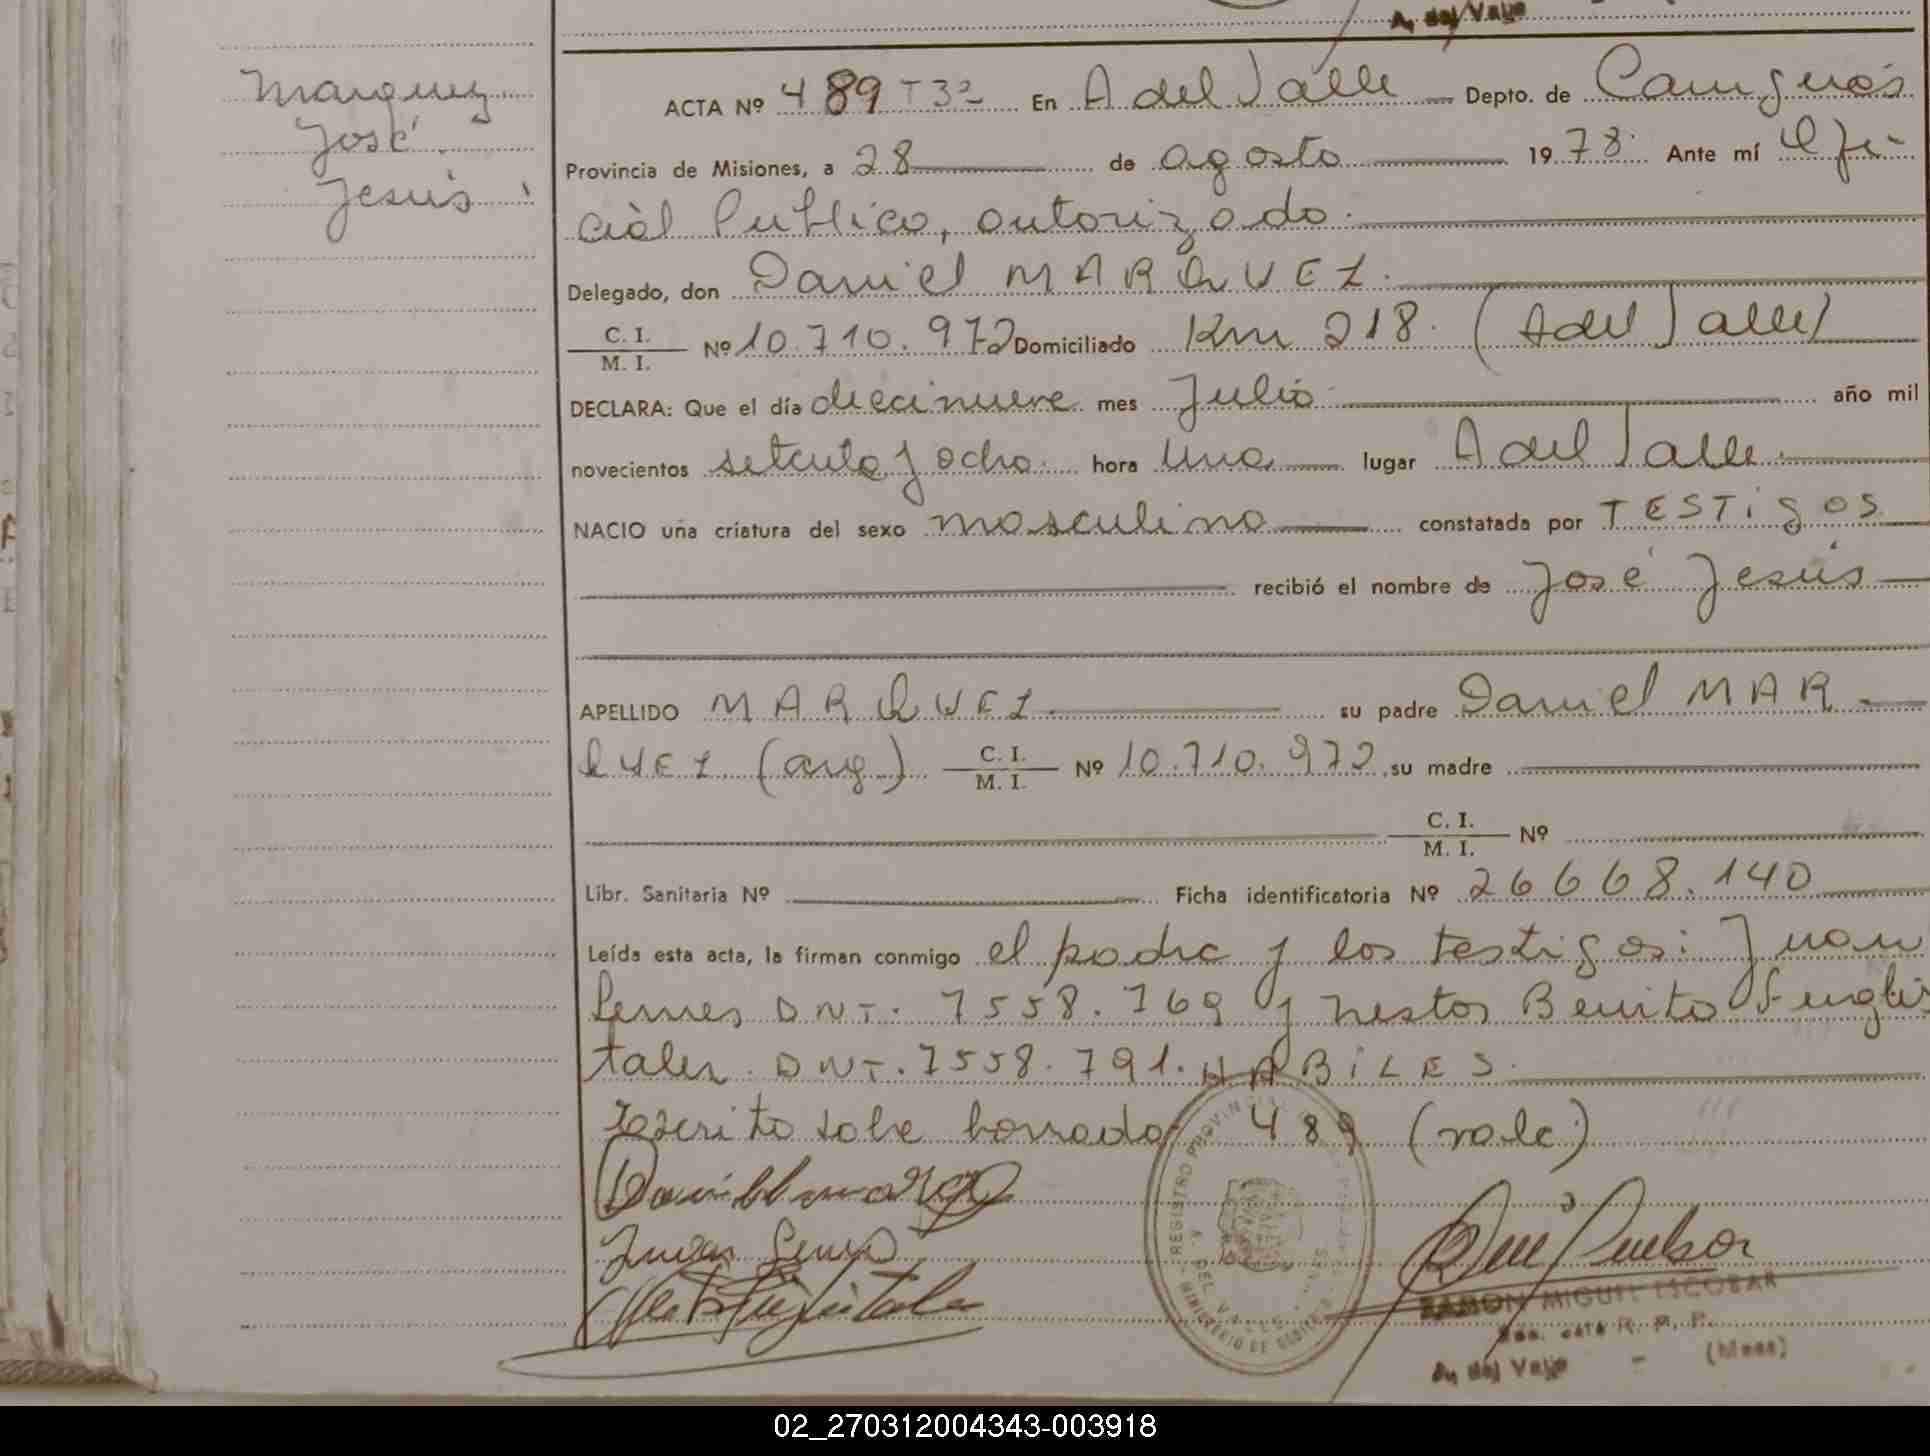 A. del Valle
Marquez
José
Jesús
ACTA Nº 489 T3º En A del Valle Depto. de Cainguás
Provincia de Misiones, a 28 de agosto 1978. Ante mí Ofi-
cial Publico, autorizado.
Delegado, don Daniel MARQUEZ.
C. I. / M. I. Nº 10.710.972 Domiciliado Km 218. (A del Valle)
DECLARA: Que el día diecinueve mes Julio año mil
novecientos setenta y ocho. hora Una lugar A del Valle.
NACIO una criatura del sexo masculino constatada por TESTigos
recibió el nombre de José Jesús
APELLIDO MARQUEZ su padre Daniel MAR-
QUEZ (arg.) C. I. / M. I. Nº 10.710.972, su madre
C. I. / M. I. Nº
Libr. Sanitaria Nº Ficha identificatoria Nº 26668.140
Leída esta acta, la firman conmigo el padre y los testigos: Juan
Lemes DNI. 7558.769 y Nestor Benito
taler. DNI. 7558.791. HABiLES.
Escrito sobre borrado: 489 (vale)
REGISTRO PROVINCIAL
A. DEL VALLE
MINISTERIO DE GOBIERNO
RAMON MIGUEL ESCOBAR
R. P. P.
A. del Valle (Mnes)
02_270312004343-003918